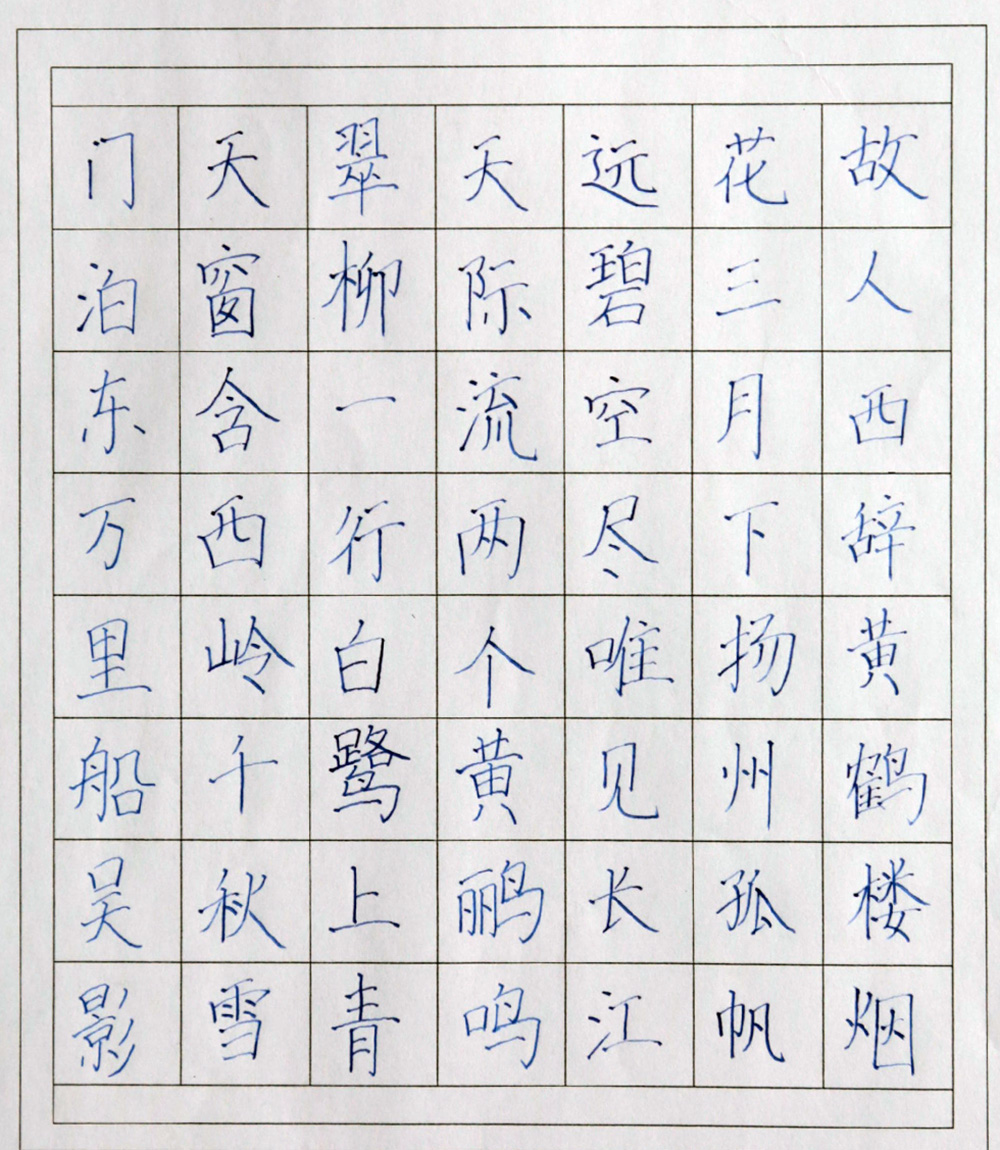 故人西辞黄鹤楼烟
花三月下扬州孤帆
远碧空尽唯见长江
天际流两个黄鹂鸣
翠柳一行白鹭上青
天窗含西岭千秋雪
门泊东万里船吴影